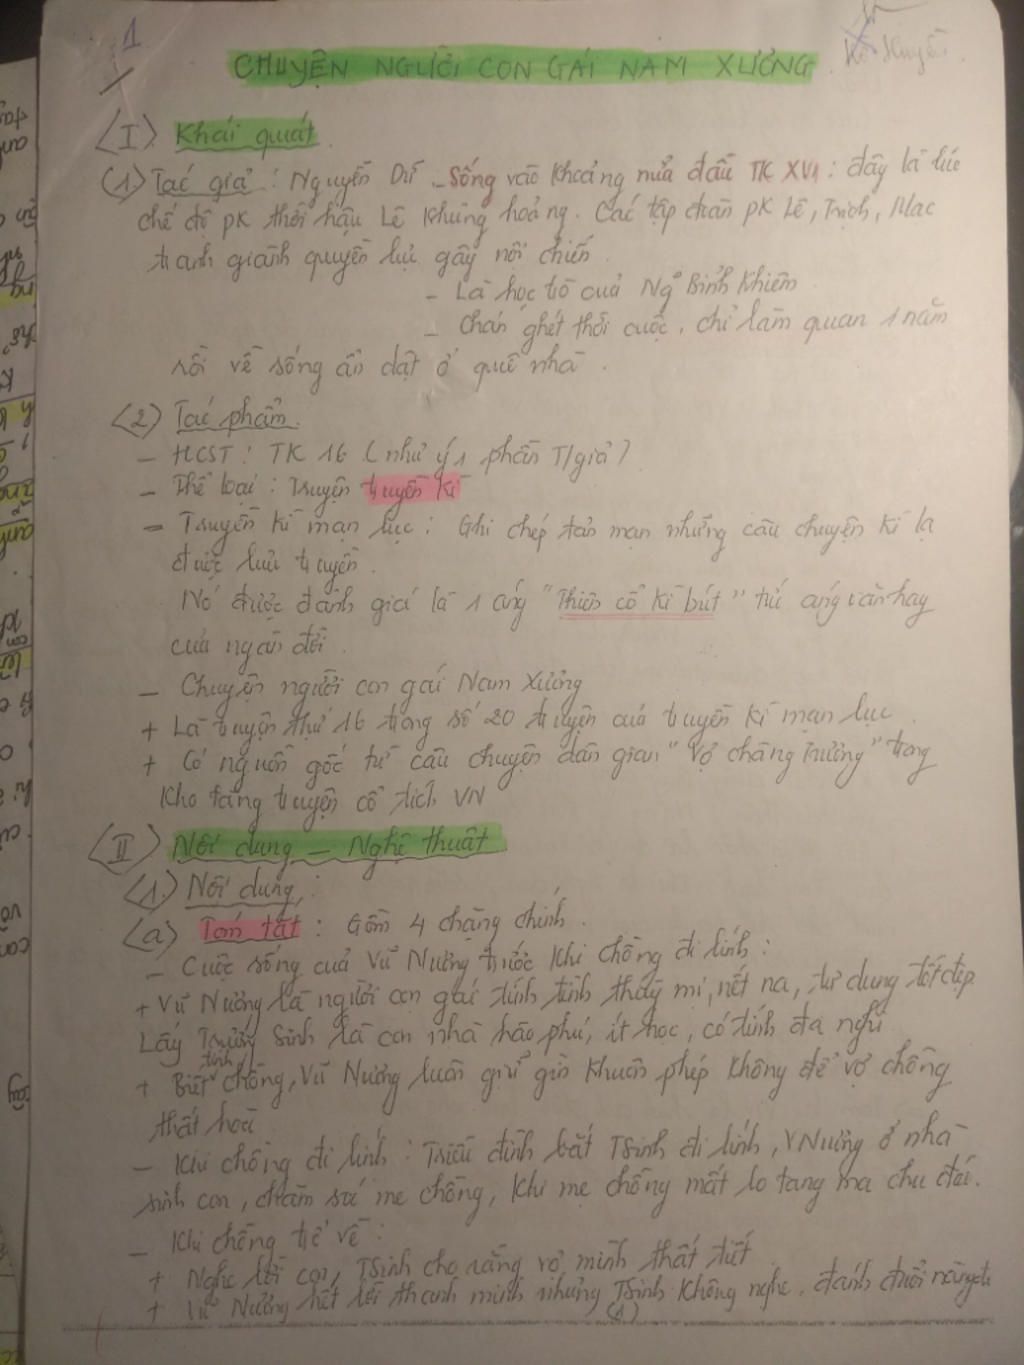 1
CHUYỆN NGƯỜI CON GÁI NAM XƯƠNG
(I) Khái quát
(1) Tác giả : Nguyễn Dữ - Sống vào khoảng nửa đầu TK XVI : đây là lúc
chế độ pk thời hậu Lê khủng hoảng. Các tập đoàn pk Lê, Trịnh, Mạc
tranh giành quyền lực gây nội chiến
- Là học trò của Ng Bỉnh Khiêm
- Chán ghét thời cuộc, chỉ làm quan 1 năm
rồi về sống ẩn dật ở quê nhà.
(2) Tác phẩm.
- HCST : TK 16 (như ý 1 phần T/giả)
- Thể loại : Truyện truyền kì
- Truyền kì mạn lục : Ghi chép tản mạn những câu chuyện kì lạ
được lưu truyền.
Nó được đánh giá là 1 áng "Thiên cổ kì bút" tức áng văn hay
của ngàn đời.
- Chuyện người con gái Nam Xương
+ Là truyện thứ 16 trong số 20 truyện của truyền kì mạn lục
+ Có nguồn gốc từ câu chuyện dân gian "vợ chàng Trương" trong
kho tàng truyện cổ tích VN
(II) Nội dung - Nghệ thuật
(1.) Nội dung :
(a) Tóm tắt : Gồm 4 chặng chính.
- Cuộc sống của Vũ Nương trước khi chồng đi lính :
+ Vũ Nương là người con gái tính tình thùy mị, nết na, tư dung tốt đẹp.
Lấy Trương Sinh là con nhà hào phú, ít học, có tính đa nghi
tính
+ Biết chồng, Vũ Nương luôn giữ gìn khuôn phép không để vợ chồng
thất hoà
- Khi chồng đi lính : Triều đình bắt TSinh đi lính, VNương ở nhà
sinh con, chăm sóc mẹ chồng, khi mẹ chồng mất lo tang ma chu đáo.
- Khi chồng trở về :
+ Nghe lời con, TSinh cho rằng vợ mình thất tiết
+ Vũ Nương hết lời thanh minh nhưng TSinh không nghe, đánh đuổi nàng đi
(1)